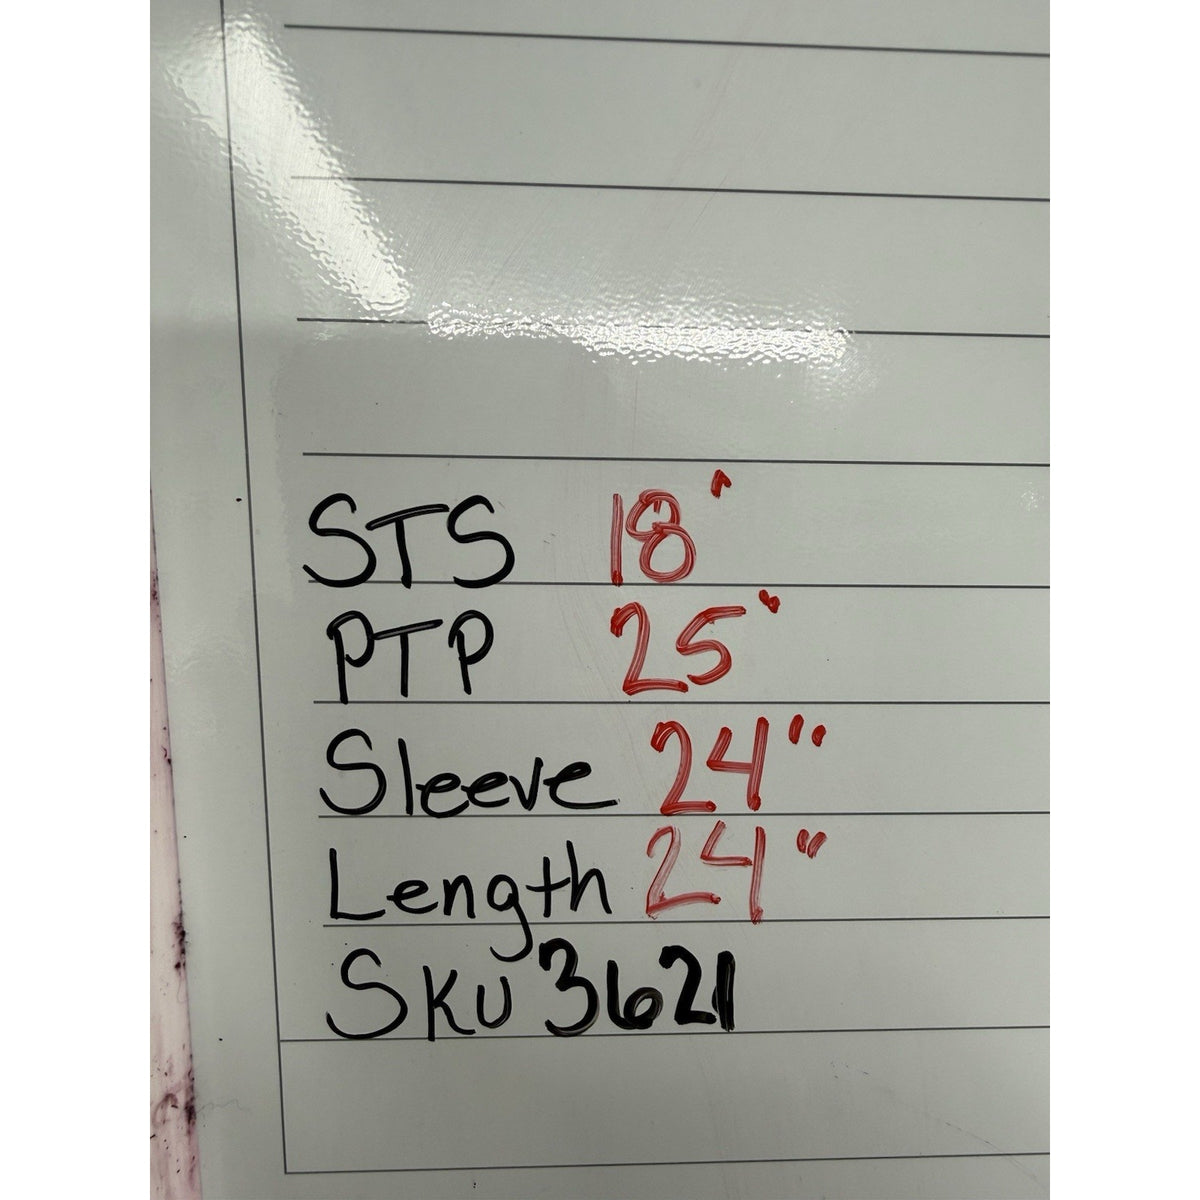 STS 18"
PTP 25"
Sleeve 24"
Length 24"
SKU 3621